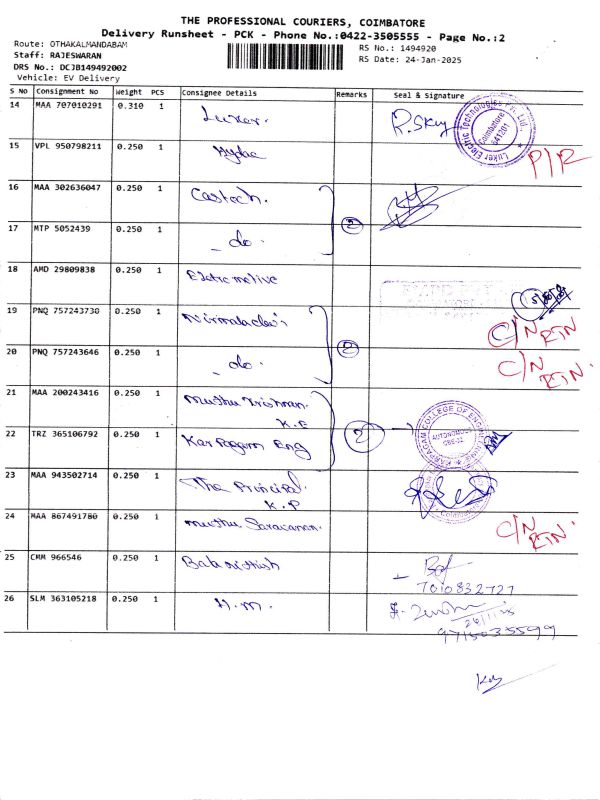 THE PROFESSIONAL COURIERS, COIMBATORE
Delivery Runsheet - PCK - Phone No.:0422-3505555 - Page No.:2
Route: OTHAKALMANDABAM
RS No.: 1494920
Staff: RAJESWARAN
RS Date: 24-Jan-2025
DRS No.: DCJB149492002
Vehicle: EV Delivery
S No Consignment No Weight PCS Consignee Details Remarks Seal & Signature
14 MAA 707010291 0.310 1 Luker.
Luker Electric Technologies Pvt. Ltd., Coimbatore 641201
15 VPL 950798211 0.250 1
P/R
16 MAA 302636047 0.250 1 Castech.
2
17 MTP 5052439 0.250 1 - do -
18 AMD 29809838 0.250 1
19 PNQ 757243730 0.250 1
C/N RTN
2
20 PNQ 757243646 0.250 1 - do -
C/N RTN
21 MAA 200243416 0.250 1 Muthu
2
22 TRZ 365106792 0.250 1 Karpagam Eng
KARPAGAM COLLEGE OF ENGINEERING
AUTONOMOUS
23 MAA 943502714 0.250 1 The Principal
24 MAA 867491780 0.250 1 Muthu Saravanan.
C/N RTN
25 CMM 966546 0.250 1
7010832727
26 SLM 363105218 0.250 1 H.M.
9715035599